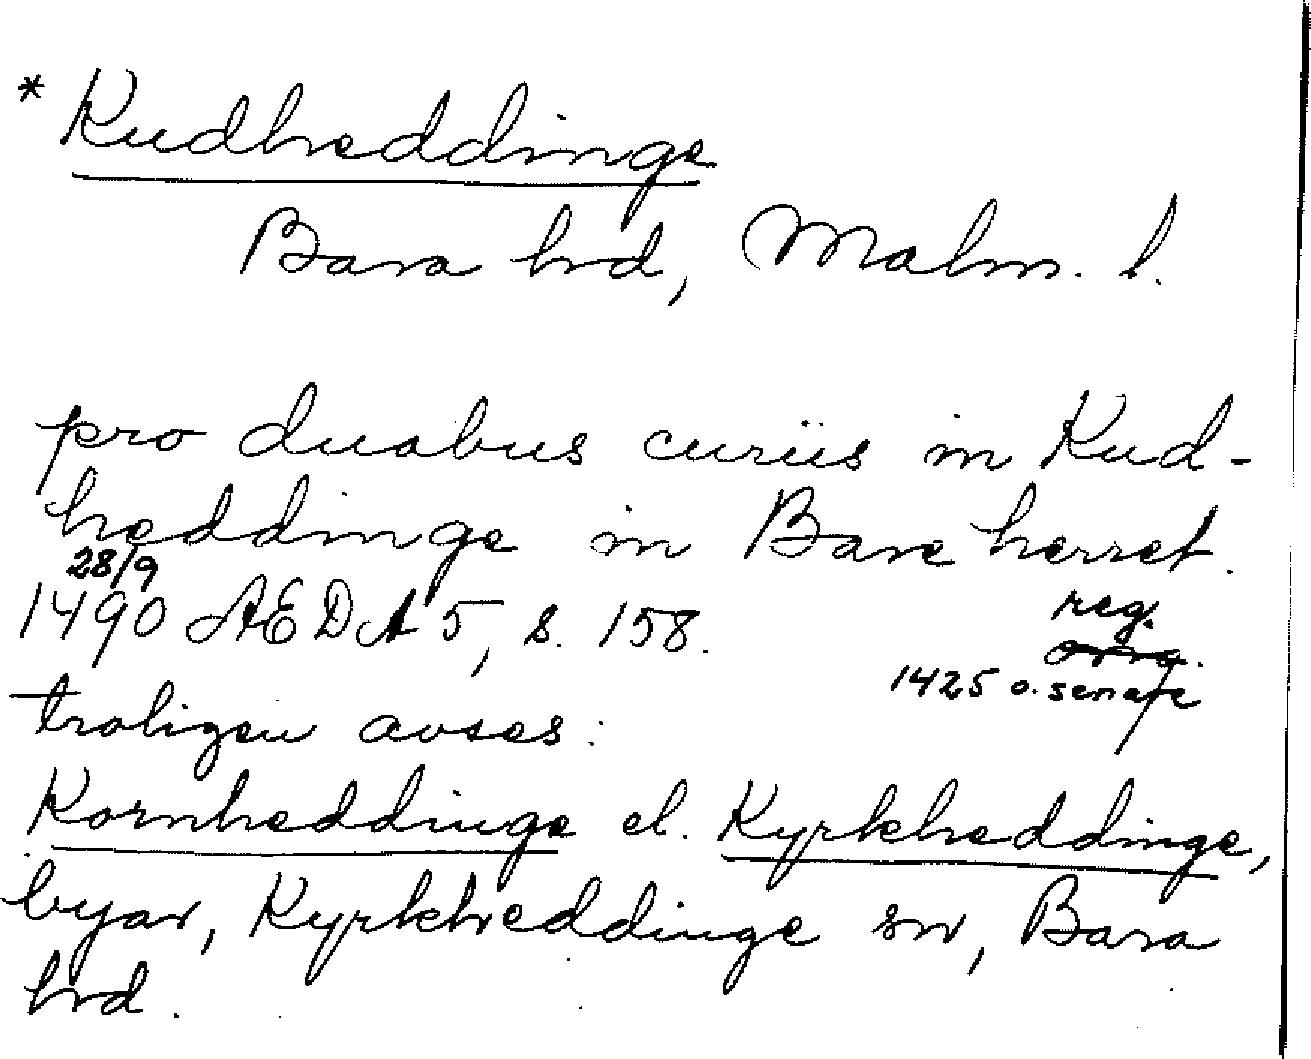 * Kudheddinge
Bara hrd, Malm. l.
pro duabus curiis in Kud-
heddinge in Bare herret.
28/9
1490 AEDA 5, s. 158.
reg.
orig.
1425 o. senare
troligen avses:
Kornheddinge el. Kyrkheddinge,
byar, Kyrkheddinge sn, Bara
hrd.